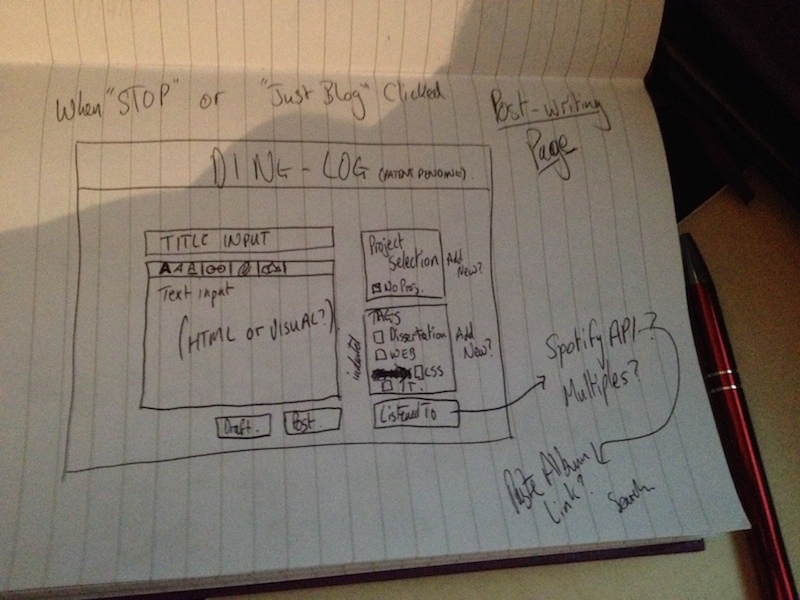 When "STOP" or "Just Blog" Clicked
Post-writing
Page
DING-LOG (PATENT PENDING).
TITLE INPUT
A A A
Text input
(HTML OR VISUAL?)
Draft.
Post.
Project
Selection
No Proj.
Add
New?
TAGS
Dissertation
WEB
CSS
IT.
indented
Add
New?
Listened To
Spotify API?
Multiples?
Paste Album
Link?
Search